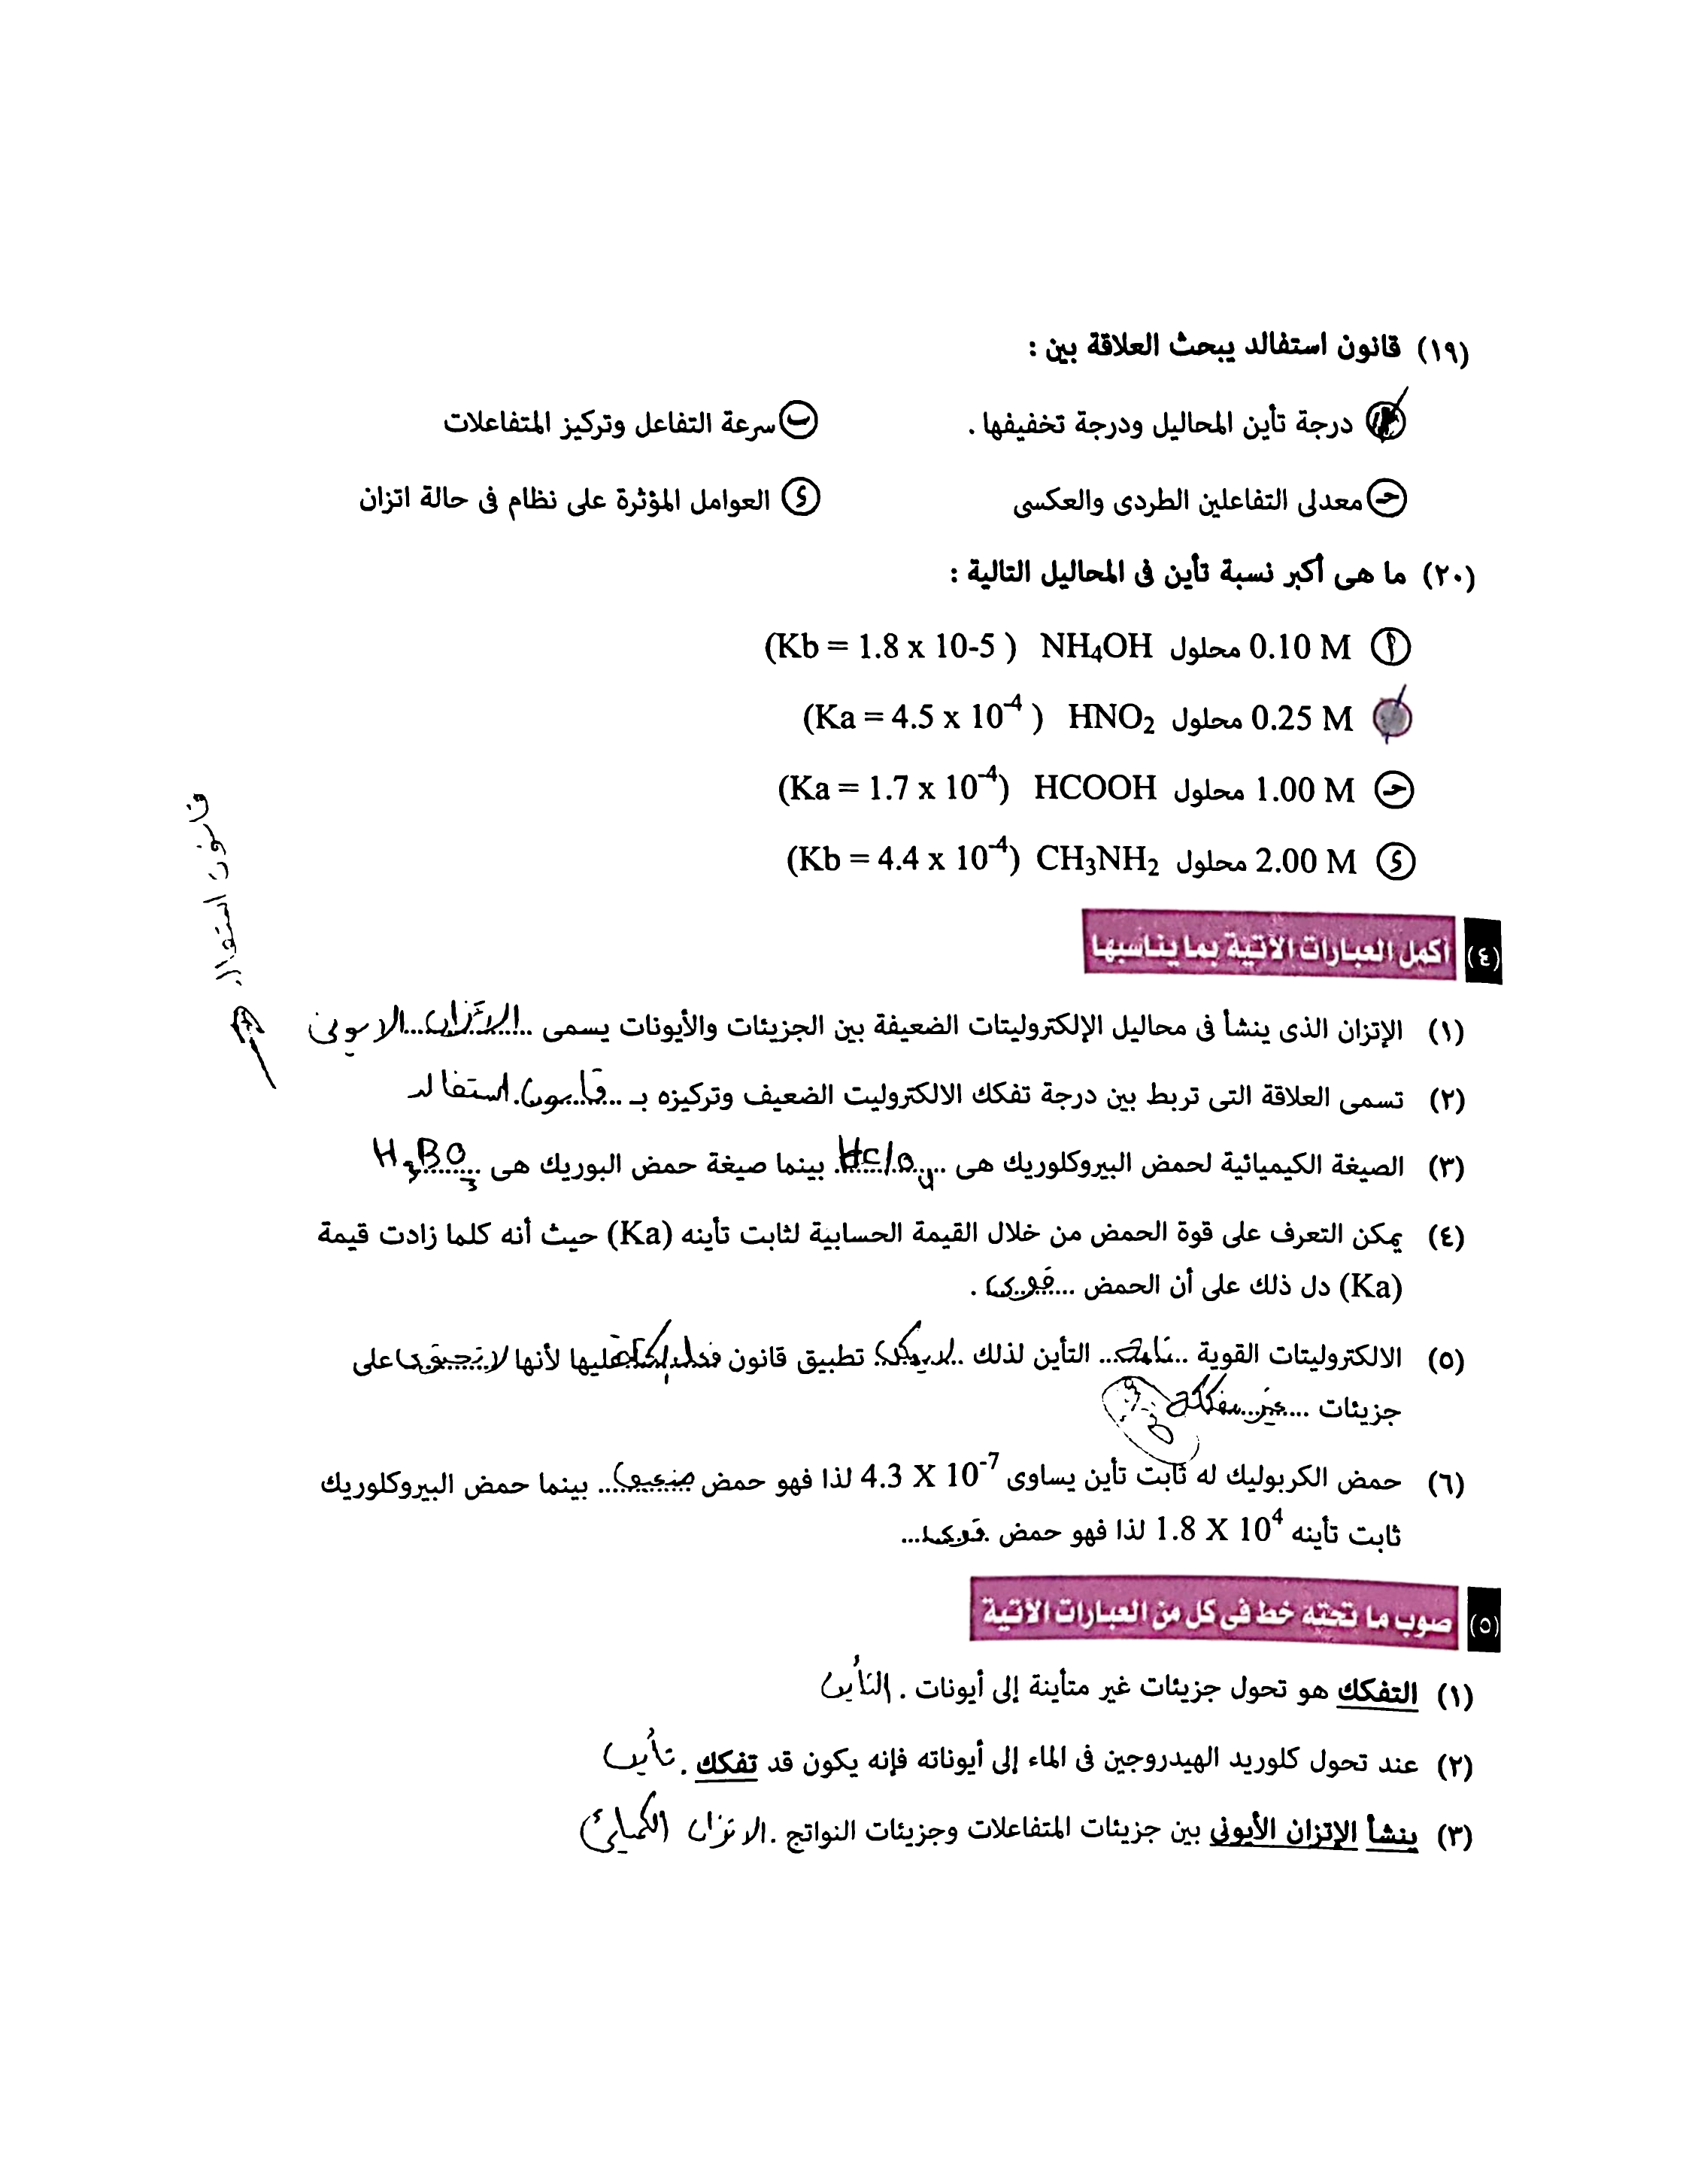 (١٩) قانون استفالد يبحث العلاقة بين :
درجة تأين المحاليل ودرجة تخفيفها . ب سرعة التفاعل وتركيز المتفاعلات
حـ معدلى التفاعلين الطردى والعكسى د العوامل المؤثرة على نظام فى حالة اتزان
(٢٠) ما هى أكبر نسبة تأين فى المحاليل التالية :
أ 0.10 M محلول NH₄OH (Kb = 1.8 x 10-5 )
0.25 M محلول HNO₂ (Ka = 4.5 x 10⁻⁴ )
حـ 1.00 M محلول HCOOH (Ka = 1.7 x 10⁻⁴)
د 2.00 M محلول CH₃NH₂ (Kb = 4.4 x 10⁻⁴)
قانون استفالد
(٤) أكمل العبارات الآتية بما يناسبها
(١) الإتزان الذى ينشأ فى محاليل الإلكتروليتات الضعيفة بين الجزيئات والأيونات يسمى ...الاتزان...الايونى
(٢) تسمى العلاقة التى تربط بين درجة تفكك الالكتروليت الضعيف وتركيزه بـ ...قانون.استفالد
(٣) الصيغة الكيميائية لحمض البيروكلوريك هى ...HClO₄... بينما صيغة حمض البوريك هى ...H₃BO₃
(٤) يمكن التعرف على قوة الحمض من خلال القيمة الحسابية لثابت تأينه (Ka) حيث أنه كلما زادت قيمة
(Ka) دل ذلك على أن الحمض ...قوى... .
(٥) الالكتروليتات القوية ...تامة... التأين لذلك ...لا يمكن... تطبيق قانون فعل الكتلة عليها لأنها لا تحتوى على
جزيئات ...غير مفككة
(٦) حمض الكربوليك له ثابت تأين يساوى 4.3 X 10⁻⁷ لذا فهو حمض ضعيف... بينما حمض البيروكلوريك
ثابت تأينه 1.8 X 10⁴ لذا فهو حمض .قوى...
(٥) صوب ما تحته خط فى كل من العبارات الآتية
(١) التفكك هو تحول جزيئات غير متأينة إلى أيونات . التأين
(٢) عند تحول كلوريد الهيدروجين فى الماء إلى أيوناته فإنه يكون قد تفكك . تأين
(٣) ينشأ الإتزان الأيونى بين جزيئات المتفاعلات وجزيئات النواتج . الاتزان الكميائى